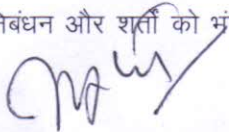 निबंधन और शर्तों को भं